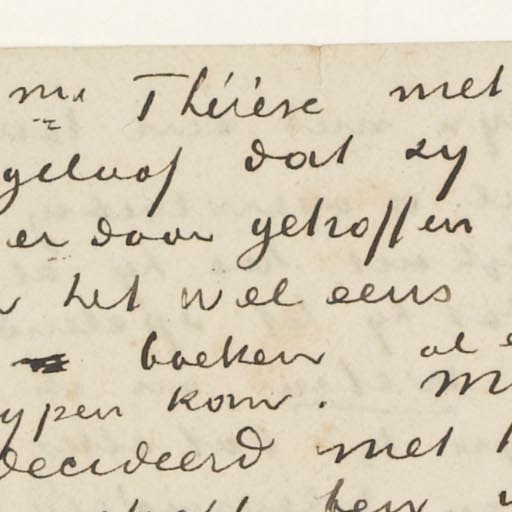 Mme Thérèse met
geloof dat zy
er door getroffen
het wel eens
boeken al
ypen kom. M
decideerd met
ben